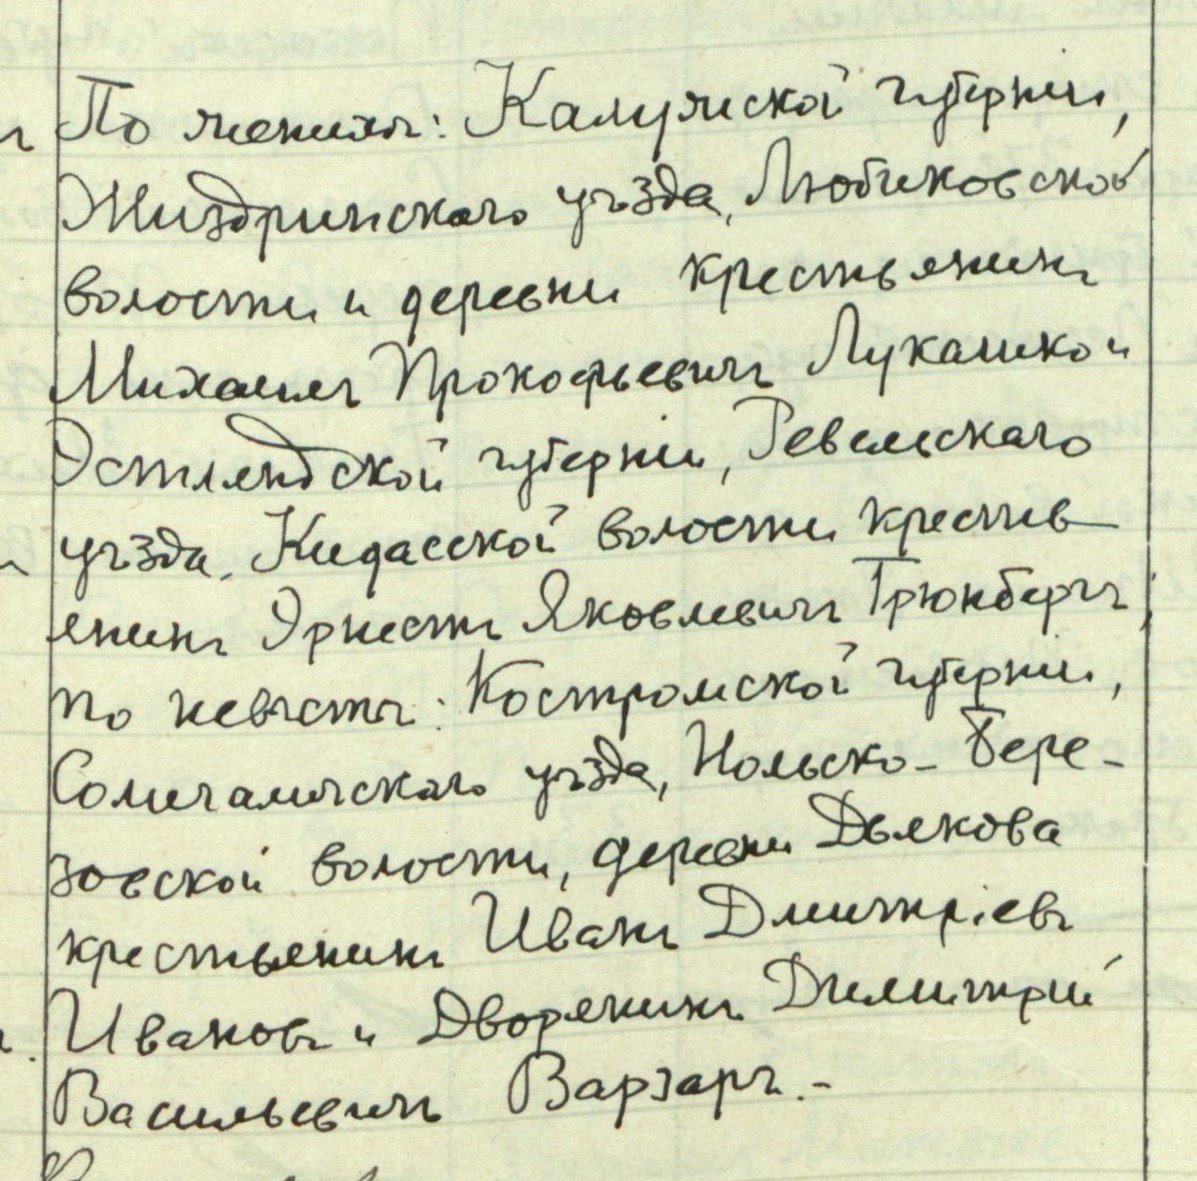 По женихѣ: Калужской губерніи,
Жиздринскаго уѣзда, Любиковской
волости и деревни крестьянинъ
Михаилъ Прокофьевичъ Лукашко и
Эстляндской губерніи, Ревельскаго
уѣзда, Кидасской волости кресть-
янинъ Эрнестъ Яковлевичъ Грюнбергъ;
по невѣстѣ: Костромской губерніи,
Солигаличскаго уѣзда, Нольско-Бере-
зовской волости, деревни Дьякова
крестьянинъ Иванъ Дмитріевъ
Ивановъ и Дворянинъ Димитрій
Васильевичъ Варзаръ.-